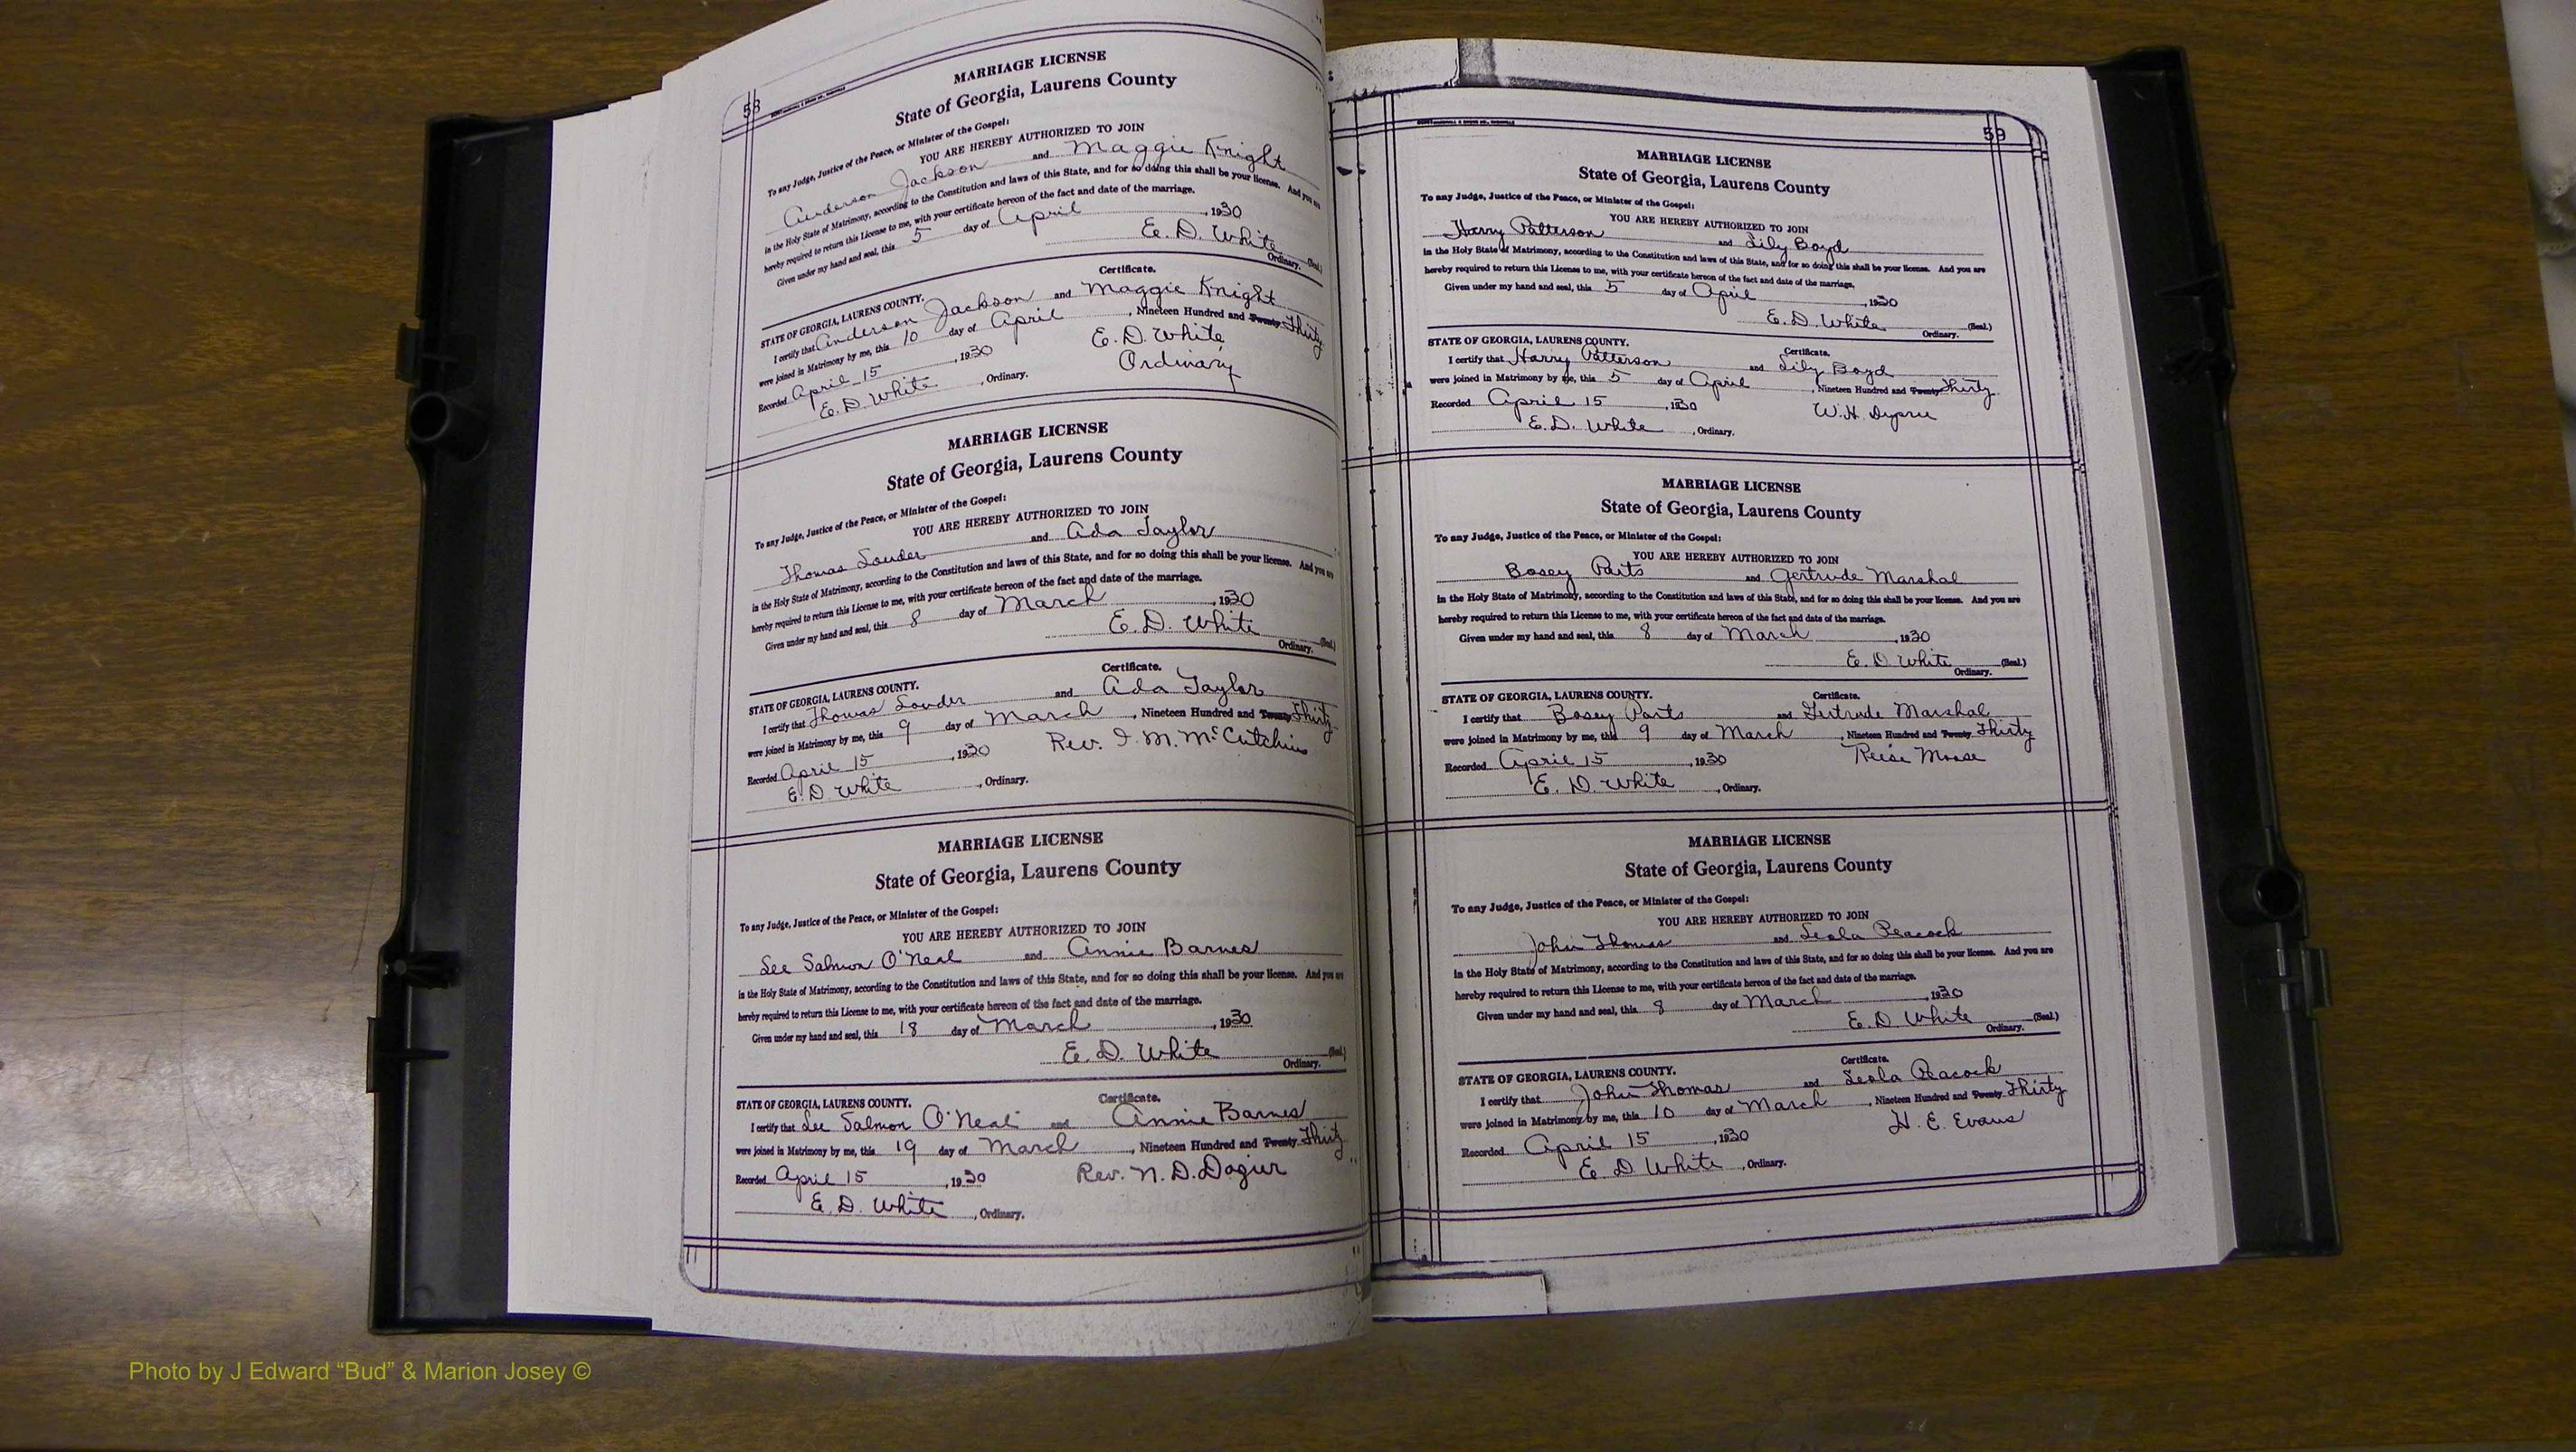 58
MARRIAGE LICENSE
State of Georgia, Laurens County
To any Judge, Justice of the Peace, or Minister of the Gospel:
YOU ARE HEREBY AUTHORIZED TO JOIN
Anderson Jackson and Maggie Knight
in the Holy State of Matrimony, according to the Constitution and laws of this State, and for so doing this shall be your license. And you are
hereby required to return this License to me, with your certificate hereon of the fact and date of the marriage.
Given under my hand and seal, this 5 day of April, 1930
E. D. White (Seal.)
Ordinary.
Certificate.
STATE OF GEORGIA, LAURENS COUNTY.
I certify that Anderson Jackson and Maggie Knight
were joined in Matrimony by me, this 10 day of April, Nineteen Hundred and Twenty Thirty
Recorded April 15, 1930 E. D. White
E. D. White, Ordinary. Ordinary
MARRIAGE LICENSE
State of Georgia, Laurens County
To any Judge, Justice of the Peace, or Minister of the Gospel:
YOU ARE HEREBY AUTHORIZED TO JOIN
Thomas Souder and Ada Taylor
in the Holy State of Matrimony, according to the Constitution and laws of this State, and for so doing this shall be your license. And you are
hereby required to return this License to me, with your certificate hereon of the fact and date of the marriage.
Given under my hand and seal, this 8 day of March, 1930
E. D. White (Seal.)
Ordinary.
Certificate.
STATE OF GEORGIA, LAURENS COUNTY.
I certify that Thomas Souder and Ada Taylor
were joined in Matrimony by me, this 9 day of March, Nineteen Hundred and Twenty Thirty
Recorded April 15, 1930 Rev. I. M. McCutchins
E. D White, Ordinary.
MARRIAGE LICENSE
State of Georgia, Laurens County
To any Judge, Justice of the Peace, or Minister of the Gospel:
YOU ARE HEREBY AUTHORIZED TO JOIN
Lee Salmon O'Neal and Annie Barnes
in the Holy State of Matrimony, according to the Constitution and laws of this State, and for so doing this shall be your license. And you are
hereby required to return this License to me, with your certificate hereon of the fact and date of the marriage.
Given under my hand and seal, this 18 day of March, 1930
E. D. White (Seal.)
Ordinary.
Certificate.
STATE OF GEORGIA, LAURENS COUNTY.
I certify that Lee Salmon O'Neal and Annie Barnes
were joined in Matrimony by me, this 19 day of March, Nineteen Hundred and Twenty Thirty
Recorded April 15, 1930 Rev. N. D. Dozier
E. D. White, Ordinary.
59
MARRIAGE LICENSE
State of Georgia, Laurens County
To any Judge, Justice of the Peace, or Minister of the Gospel:
YOU ARE HEREBY AUTHORIZED TO JOIN
Harry Patterson and Lily Boyd
in the Holy State of Matrimony, according to the Constitution and laws of this State, and for so doing this shall be your license. And you are
hereby required to return this License to me, with your certificate hereon of the fact and date of the marriage.
Given under my hand and seal, this 5 day of April, 1930
E. D. White (Seal.)
Ordinary.
Certificate.
STATE OF GEORGIA, LAURENS COUNTY.
I certify that Harry Patterson and Lily Boyd
were joined in Matrimony by me, this 5 day of April, Nineteen Hundred and Twenty Thirty
Recorded April 15, 1930 W. H. Dupree
E. D. White, Ordinary.
MARRIAGE LICENSE
State of Georgia, Laurens County
To any Judge, Justice of the Peace, or Minister of the Gospel:
YOU ARE HEREBY AUTHORIZED TO JOIN
Bosey Parts and Gertrude Marshal
in the Holy State of Matrimony, according to the Constitution and laws of this State, and for so doing this shall be your license. And you are
hereby required to return this License to me, with your certificate hereon of the fact and date of the marriage.
Given under my hand and seal, this 8 day of March, 1930
E. D White (Seal.)
Ordinary.
Certificate.
STATE OF GEORGIA, LAURENS COUNTY.
I certify that Bosey Parts and Gertrude Marshal
were joined in Matrimony by me, this 9 day of March, Nineteen Hundred and Twenty Thirty
Recorded April 15, 1930
E. D. White, Ordinary.
MARRIAGE LICENSE
State of Georgia, Laurens County
To any Judge, Justice of the Peace, or Minister of the Gospel:
YOU ARE HEREBY AUTHORIZED TO JOIN
John Thomas and Leola Peacock
in the Holy State of Matrimony, according to the Constitution and laws of this State, and for so doing this shall be your license. And you are
hereby required to return this License to me, with your certificate hereon of the fact and date of the marriage.
Given under my hand and seal, this 8 day of March, 1930
E. D White (Seal.)
Ordinary.
Certificate.
STATE OF GEORGIA, LAURENS COUNTY.
I certify that John Thomas and Leola Peacock
were joined in Matrimony by me, this 10 day of March, Nineteen Hundred and Twenty Thirty
Recorded April 15, 1930 H. E. Evans
E D White, Ordinary.
Photo by J Edward “Bud” & Marion Josey ©